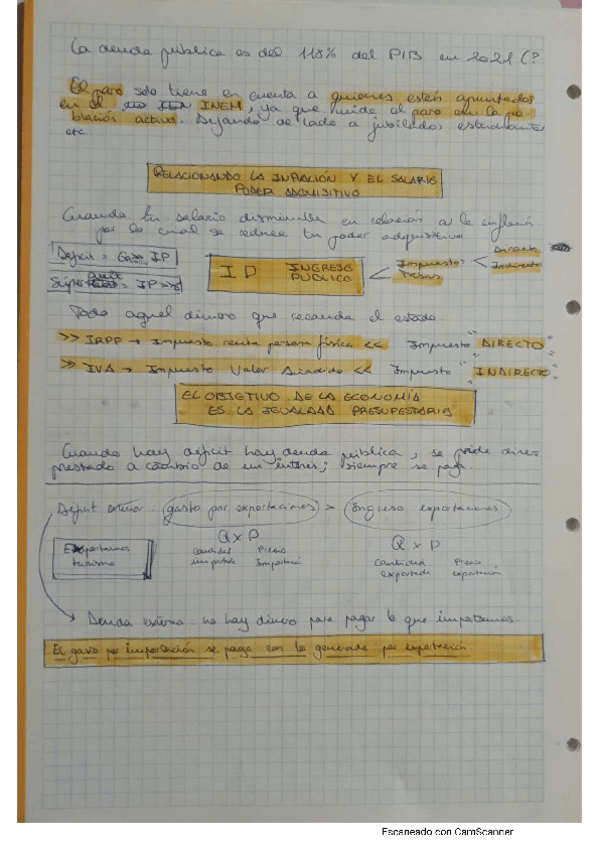 La deuda pública es del 118% del PIB en 2021 (?
El paro solo tiene en cuenta a quienes estén apuntados
en el INEM, ya que mide al paro en la po-
blación activa. Dejando de lado a jubilados estudiantes
etc.
RELACIONANDO LA INFLACIÓN Y EL SALARIO
PODER ADQUISITIVO
Cuando tu salario disminuye en relación a la inflación
por lo cual se reduce tu poder adquisitivo
Déficit = G>IP
Súperávit = IP>G
IP INGRESO PÚBLICO
Impuestos
Tasas
Directo
Indirecto
Todo aquel dinero que recauda el estado.
>> IRPF → Impuesto renta persona física << Impuesto "DIRECTO"
>> IVA → Impuesto Valor Añadido << Impuesto "INDIRECTO"
EL OBJETIVO DE LA ECONOMÍA
ES LA IGUALDAD PRESUPESTARIA
Cuando hay déficit hay deuda pública, se pide dinero
prestado a cambio de un interés; siempre se paga.
Déficit exterior: gasto por exportaciones > Ingreso exportaciones
Q x P
Q x P
Exportamos
turismo
Cantidad importada
Precio Importación
Cantidad exportada
Precio exportación
Deuda externa: no hay dinero para pagar lo que importamos.
El gasto por importación se paga con lo generado por exportación
Escaneado con CamScanner